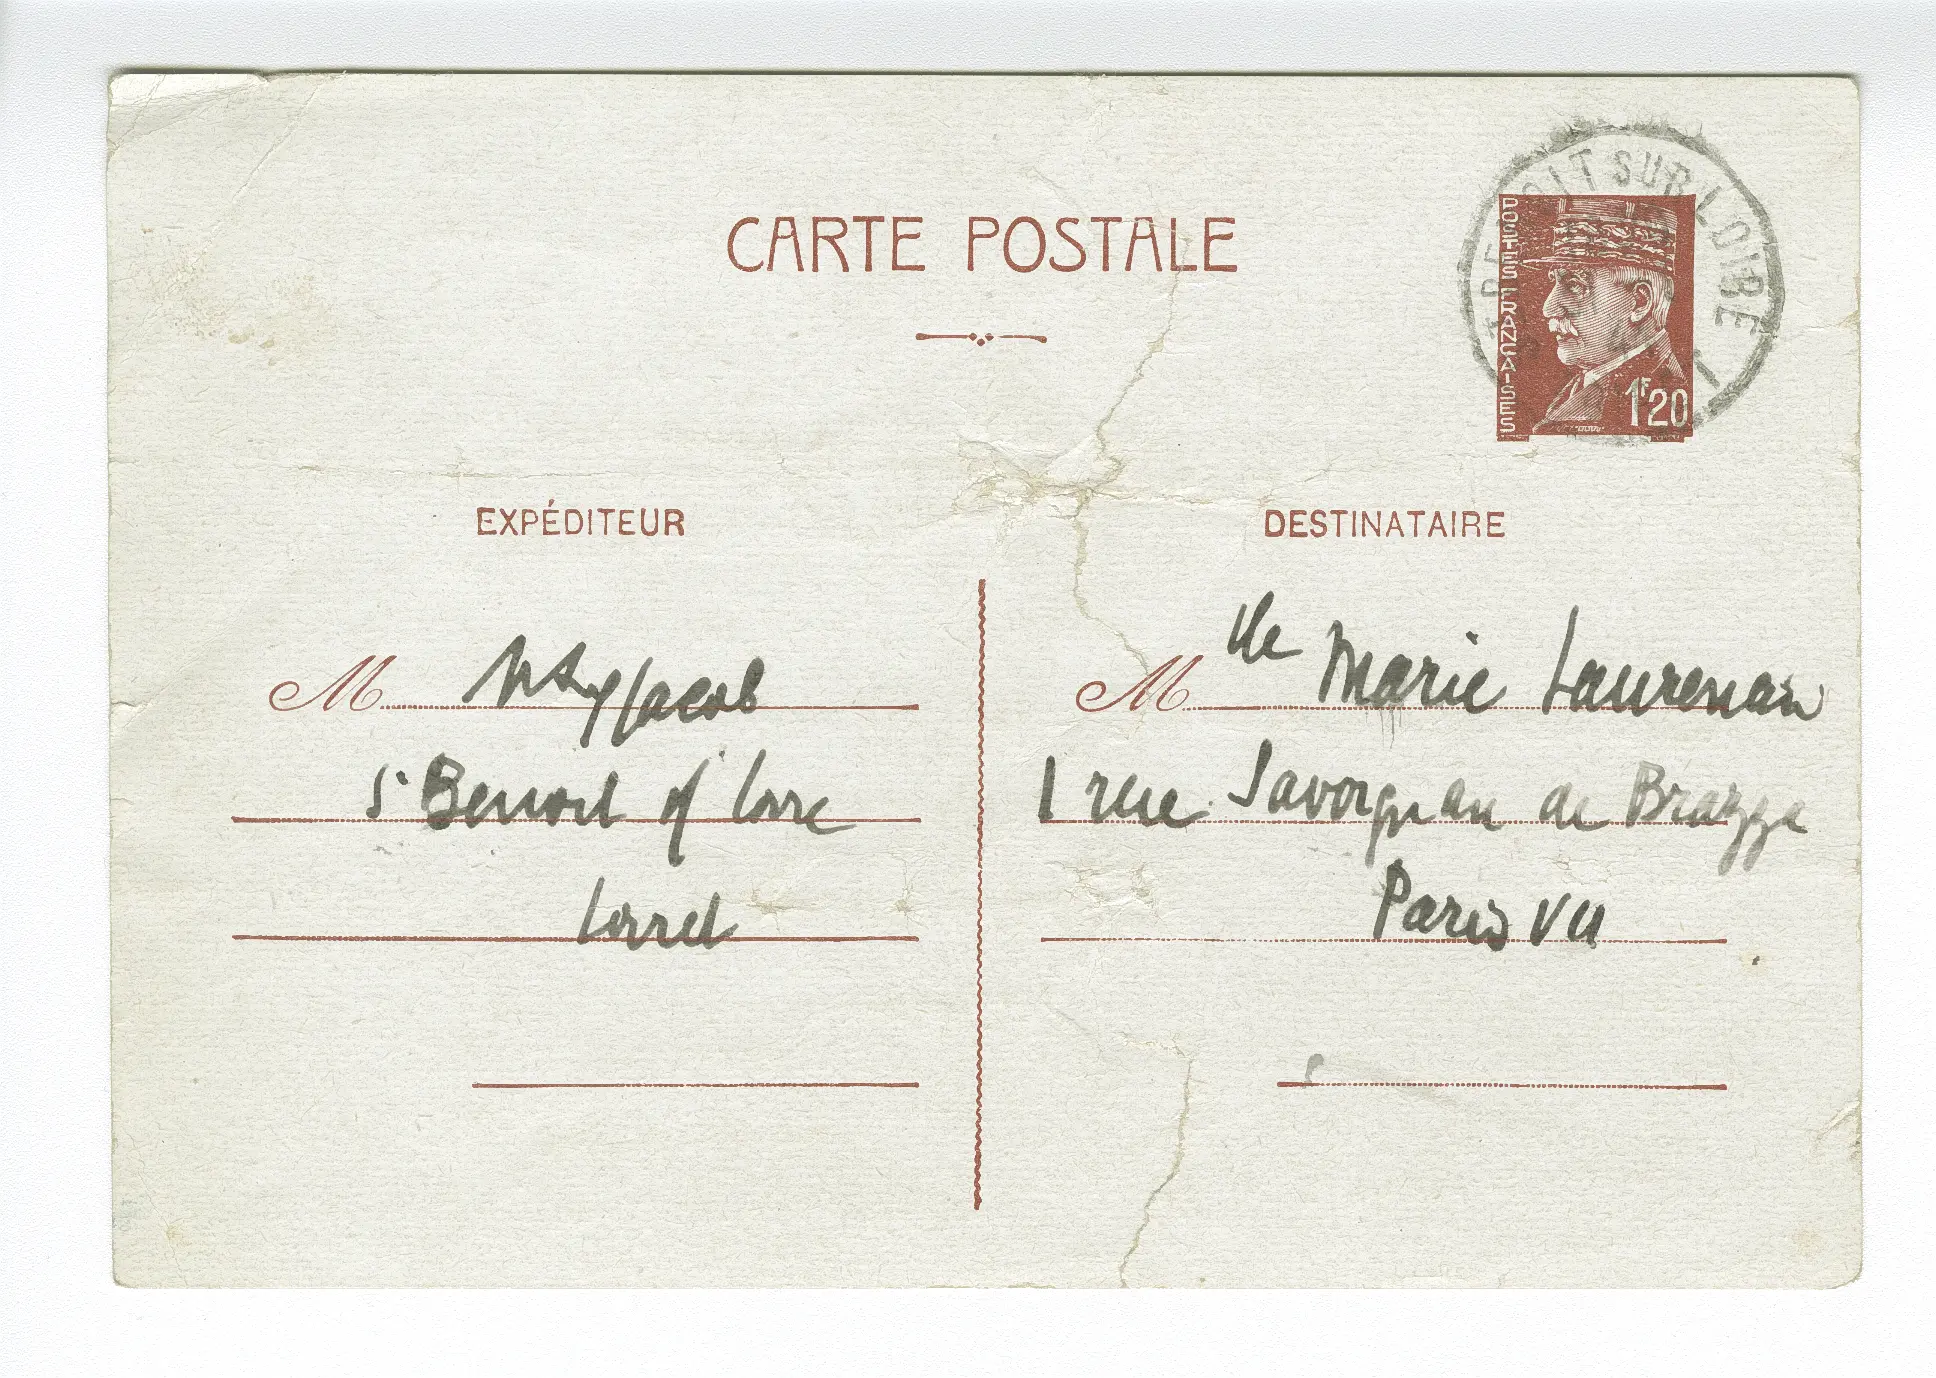 CARTE POSTALE
POSTES FRANÇAISES
1F20
BENOIT SUR LOIRE
EXPÉDITEUR
M. Max Jacob
St Benoit s/ Loire
Loiret
DESTINATAIRE
M lle Marie Laurencin
1 rue Savorgnan de Brazza
Paris VII